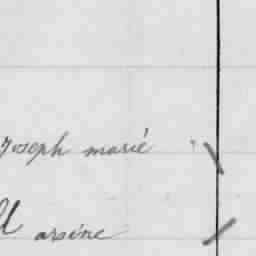 Joseph marié
arsène